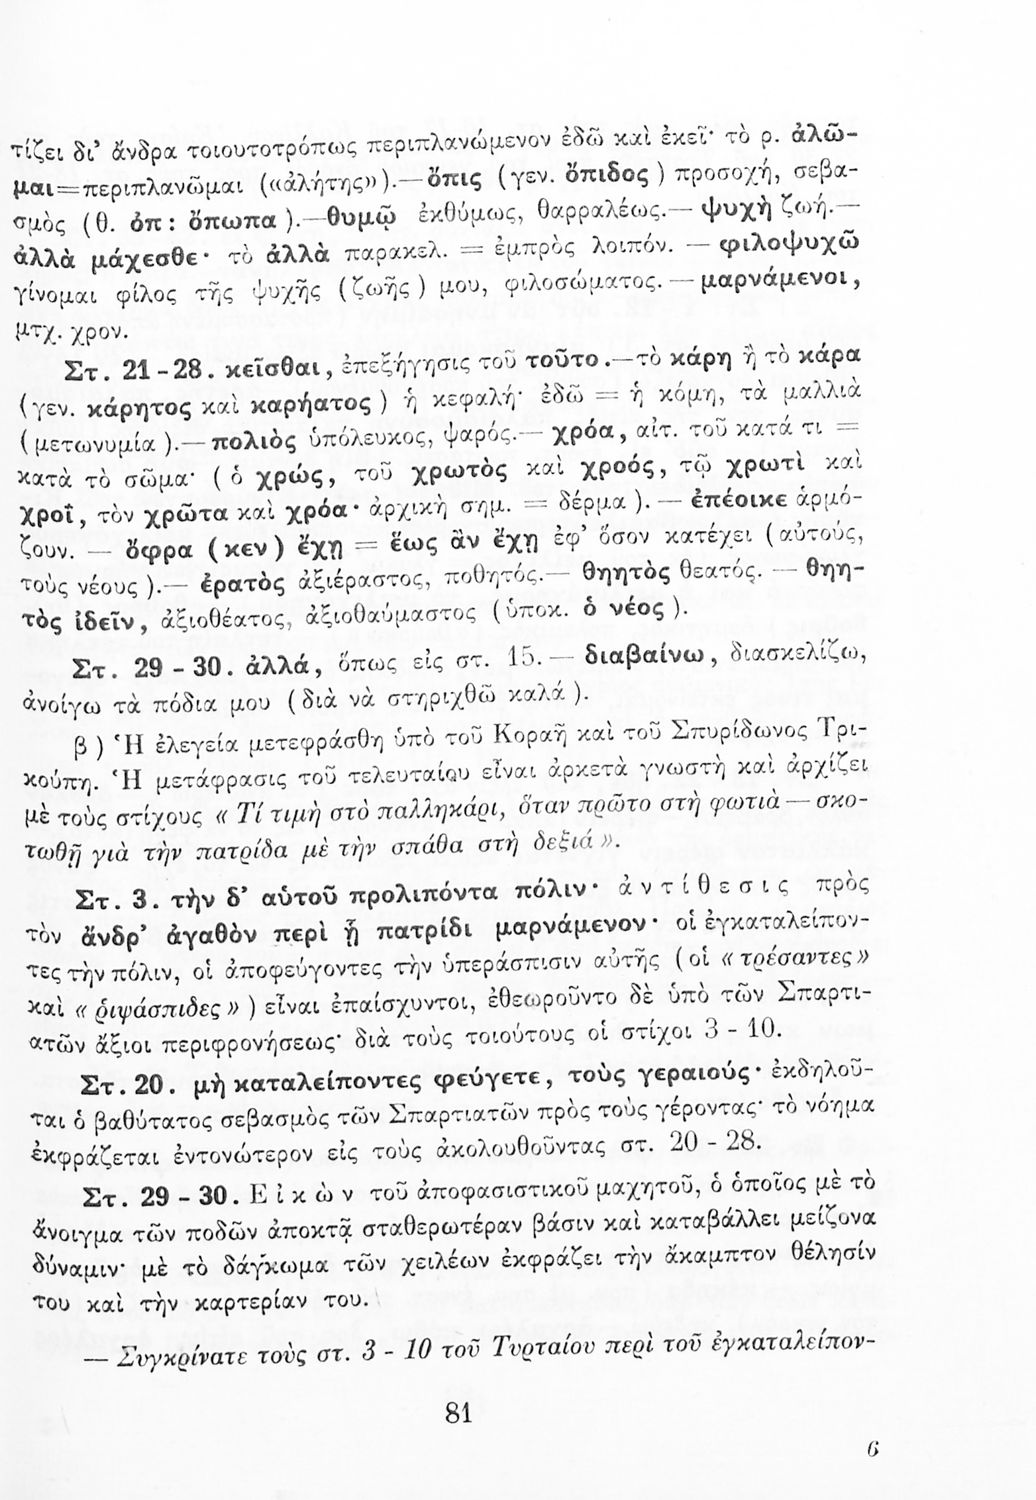 τίζει δι’ ἄνδρα τοιουτοτρόπως περιπλανώμενον ἐδῶ καὶ ἐκεῖ· τὸ ρ. ἀλῶ-
μαι=περιπλανῶμαι («ἀλήτης»).—ὄπις (γεν. ὄπιδος) προσοχή, σεβα-
σμὸς (θ. ὀπ: ὄπωπα).—θυμῷ ἐκθύμως, θαρραλέως.— ψυχὴ ζωή.—
ἀλλὰ μάχεσθε· τὸ ἀλλὰ παρακελ. = ἐμπρὸς λοιπόν. — φιλοψυχῶ
γίνομαι φίλος τῆς ψυχῆς (ζωῆς) μου, φιλοσώματος. — μαρνάμενοι,
μτχ. χρον.
Στ. 21-28. κεῖσθαι, ἐπεξήγησις τοῦ τοῦτο.—τὸ κάρη ἢ τὸ κάρα
(γεν. κάρητος καὶ καρήατος) ἡ κεφαλή· ἐδῶ = ἡ κόμη, τὰ μαλλιὰ
(μετωνυμία).— πολιὸς ὑπόλευκος, ψαρός.— χρόα, αἰτ. τοῦ κατά τι =
κατὰ τὸ σῶμα· (ὁ χρώς, τοῦ χρωτὸς καὶ χροός, τῷ χρωτὶ καὶ
χροΐ, τὸν χρῶτα καὶ χρόα· ἀρχικὴ σημ. = δέρμα). — ἐπέοικε ἁρμό-
ζουν. — ὄφρα (κεν) ἔχῃ = ἕως ἂν ἔχῃ ἐφ’ ὅσον κατέχει (αὐτούς,
τοὺς νέους).— ἐρατὸς ἀξιέραστος, ποθητός.— θηητὸς θεατός. — θηη-
τὸς ἰδεῖν, ἀξιοθέατος, ἀξιοθαύμαστος (ὑποκ. ὁ νέος).
Στ. 29 - 30. ἀλλά, ὅπως εἰς στ. 15. — διαβαίνω, διασκελίζω,
ἀνοίγω τὰ πόδια μου (διὰ νὰ στηριχθῶ καλά).
β) Ἡ ἐλεγεία μετεφράσθη ὑπὸ τοῦ Κοραῆ καὶ τοῦ Σπυρίδωνος Τρι-
κούπη. Ἡ μετάφρασις τοῦ τελευταίου εἶναι ἀρκετὰ γνωστὴ καὶ ἀρχίζει
μὲ τοὺς στίχους « Τί τιμὴ στὸ παλληκάρι, ὅταν πρῶτο στὴ φωτιὰ — σκο-
τωθῇ γιὰ τὴν πατρίδα μὲ τὴν σπάθα στὴ δεξιά ».
Στ. 3. τὴν δ’ αὑτοῦ προλιπόντα πόλιν· ἀντίθεσις πρὸς
τὸν ἄνδρ’ ἀγαθὸν περὶ ᾗ πατρίδι μαρνάμενον· οἱ ἐγκαταλείπον-
τες τὴν πόλιν, οἱ ἀποφεύγοντες τὴν ὑπεράσπισιν αὐτῆς (οἱ « τρέσαντες »
καὶ « ῥιψάσπιδες ») εἶναι ἐπαίσχυντοι, ἐθεωροῦντο δὲ ὑπὸ τῶν Σπαρτι-
ατῶν ἄξιοι περιφρονήσεως· διὰ τοὺς τοιούτους οἱ στίχοι 3 - 10.
Στ. 20. μὴ καταλείποντες φεύγετε, τοὺς γεραιούς· ἐκδηλοῦ-
ται ὁ βαθύτατος σεβασμὸς τῶν Σπαρτιατῶν πρὸς τοὺς γέροντας· τὸ νόημα
ἐκφράζεται ἐντονώτερον εἰς τοὺς ἀκολουθοῦντας στ. 20 - 28.
Στ. 29 - 30. Εἰκὼν τοῦ ἀποφασιστικοῦ μαχητοῦ, ὁ ὁποῖος μὲ τὸ
ἄνοιγμα τῶν ποδῶν ἀποκτᾷ σταθερωτέραν βάσιν καὶ καταβάλλει μείζονα
δύναμιν· μὲ τὸ δάγκωμα τῶν χειλέων ἐκφράζει τὴν ἄκαμπτον θέλησίν
του καὶ τὴν καρτερίαν του.
— Συγκρίνατε τοὺς στ. 3 - 10 τοῦ Τυρταίου περὶ τοῦ ἐγκαταλείπον-
81
6